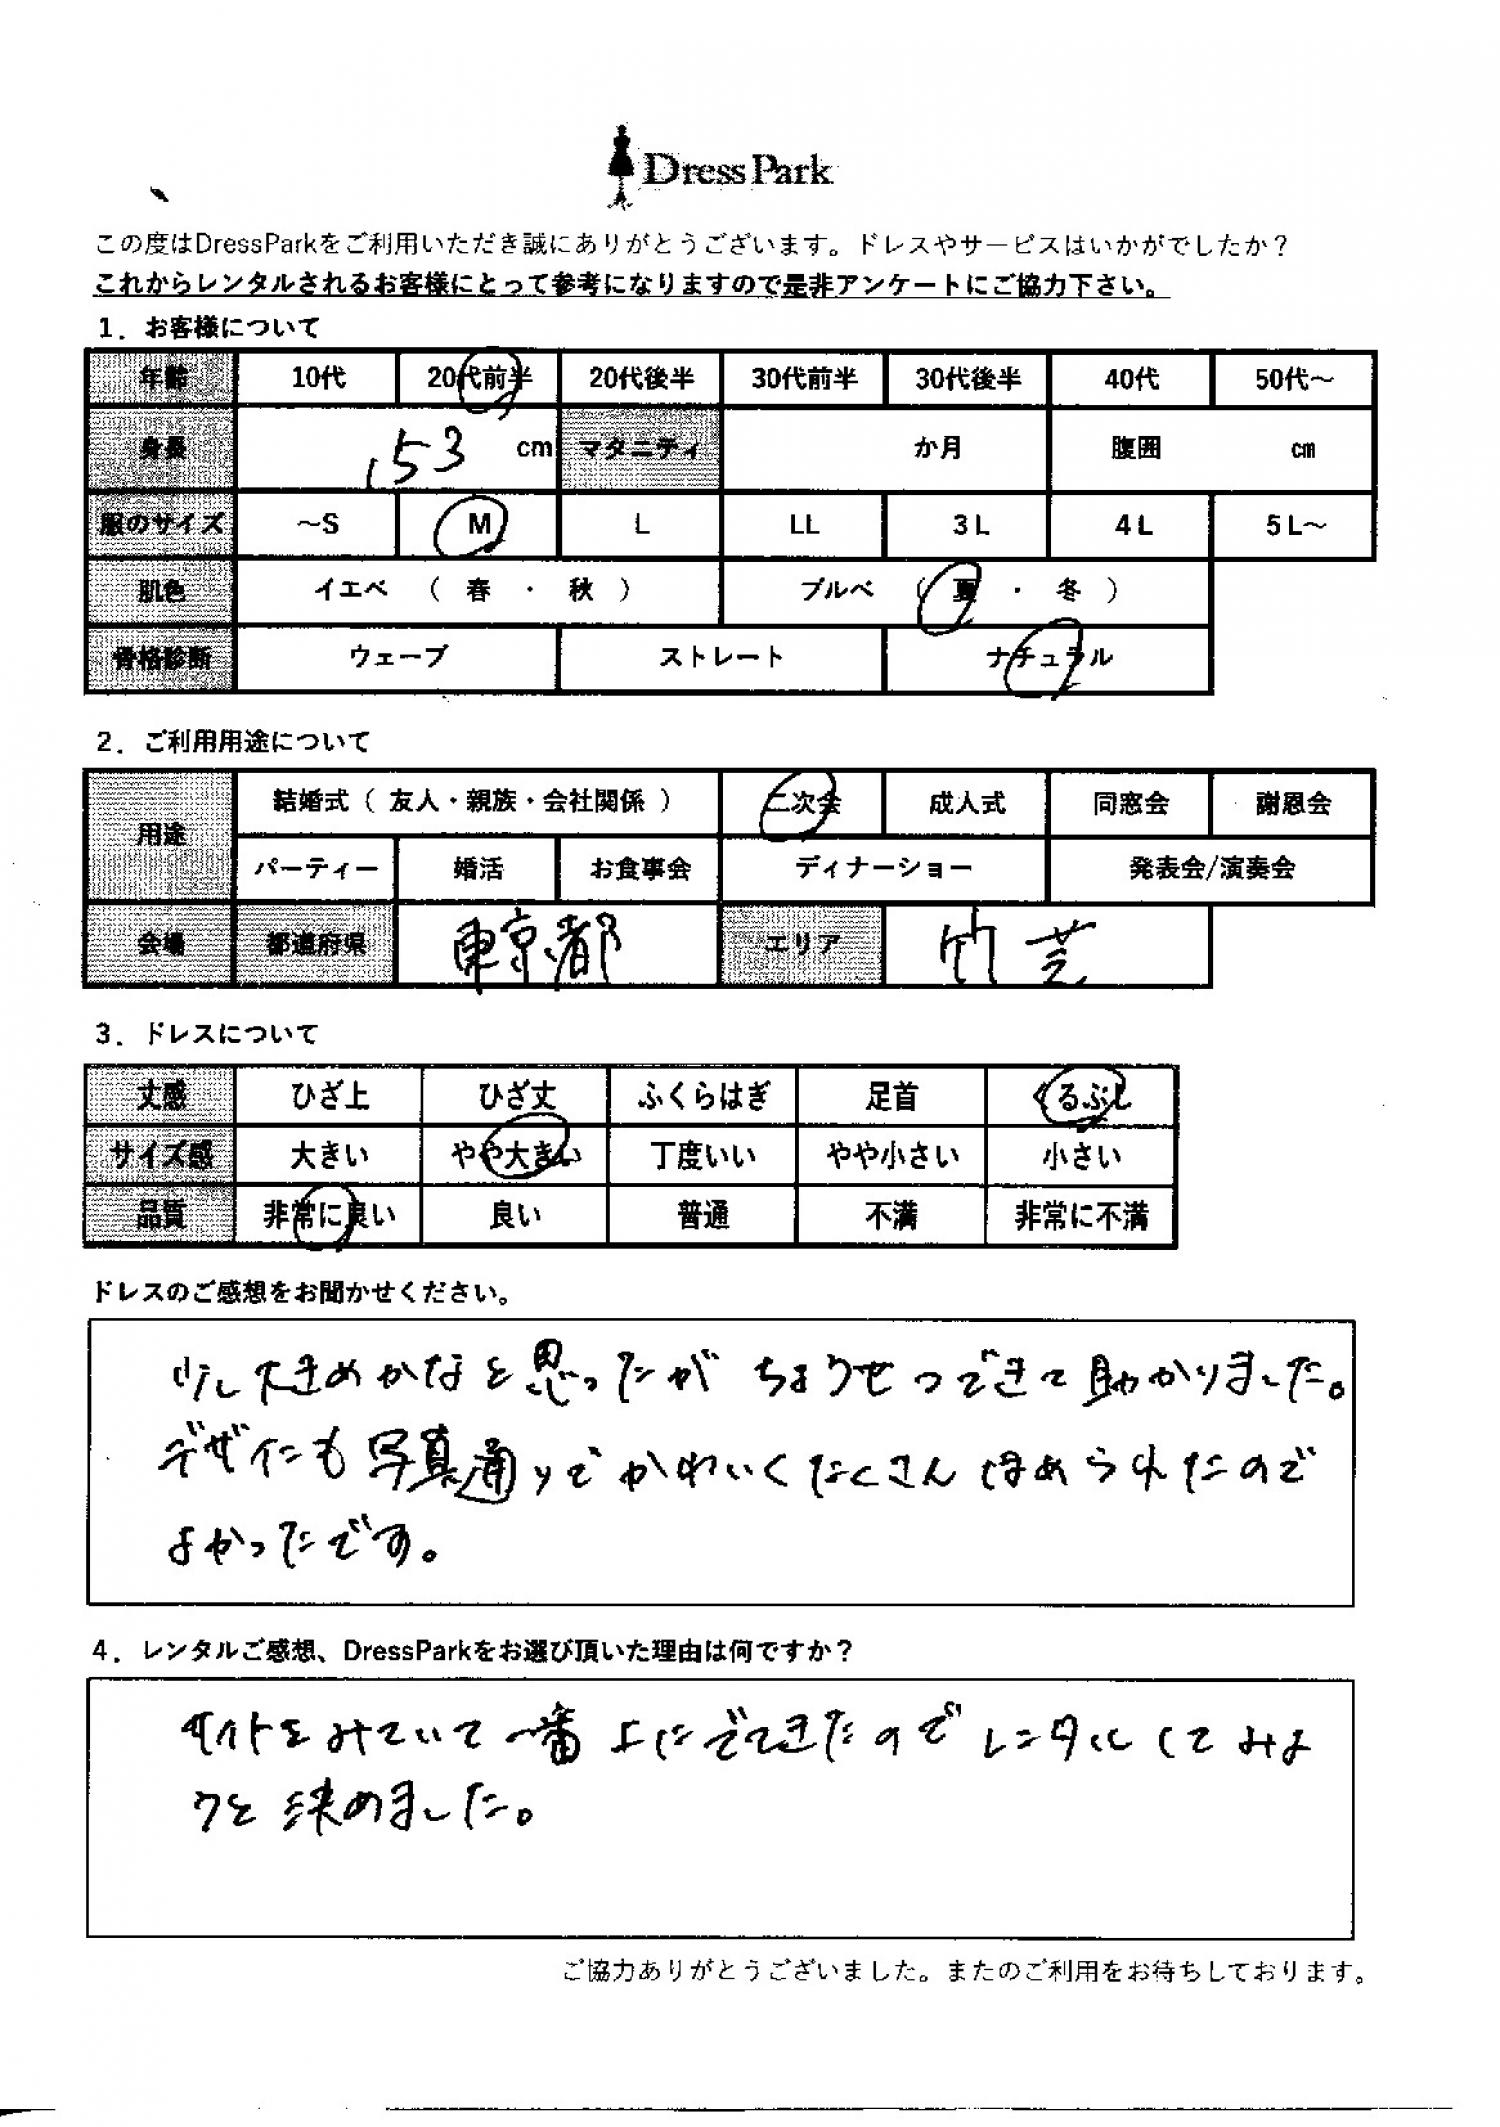 Dress Park
この度はDressParkをご利用いただき誠にありがとうございます。ドレスやサービスはいかがでしたか？
これからレンタルされるお客様にとって参考になりますので是非アンケートにご協力下さい。
1．お客様について
年齢 10代 20代前半 20代後半 30代前半 30代後半 40代 50代～
身長 153 cm マタニティ か月 腹囲 ㎝
服のサイズ ～S M L LL 3L 4L 5L～
肌色 イエベ （ 春 ・ 秋 ） ブルベ （ 夏 ・ 冬 ）
骨格診断 ウェーブ ストレート ナチュラル
2．ご利用用途について
用途 結婚式（ 友人・親族・会社関係 ） 二次会 成人式 同窓会 謝恩会
パーティー 婚活 お食事会 ディナーショー 発表会/演奏会
会場 都道府県 東京都 エリア 竹芝
3．ドレスについて
丈感 ひざ上 ひざ丈 ふくらはぎ 足首 くるぶし
サイズ感 大きい やや大きい 丁度いい やや小さい 小さい
品質 非常に良い 良い 普通 不満 非常に不満
ドレスのご感想をお聞かせください。
少し大きめかなと思ったが ちょうせつできて助かりました。
デザインも写真通りでかわいくたくさんほめられたので
よかったです。
4．レンタルご感想、DressParkをお選び頂いた理由は何ですか？
サイトをみていて一番上にでてきたのでレンタルしてみよ
うと決めました。
ご協力ありがとうございました。またのご利用をお待ちしております。